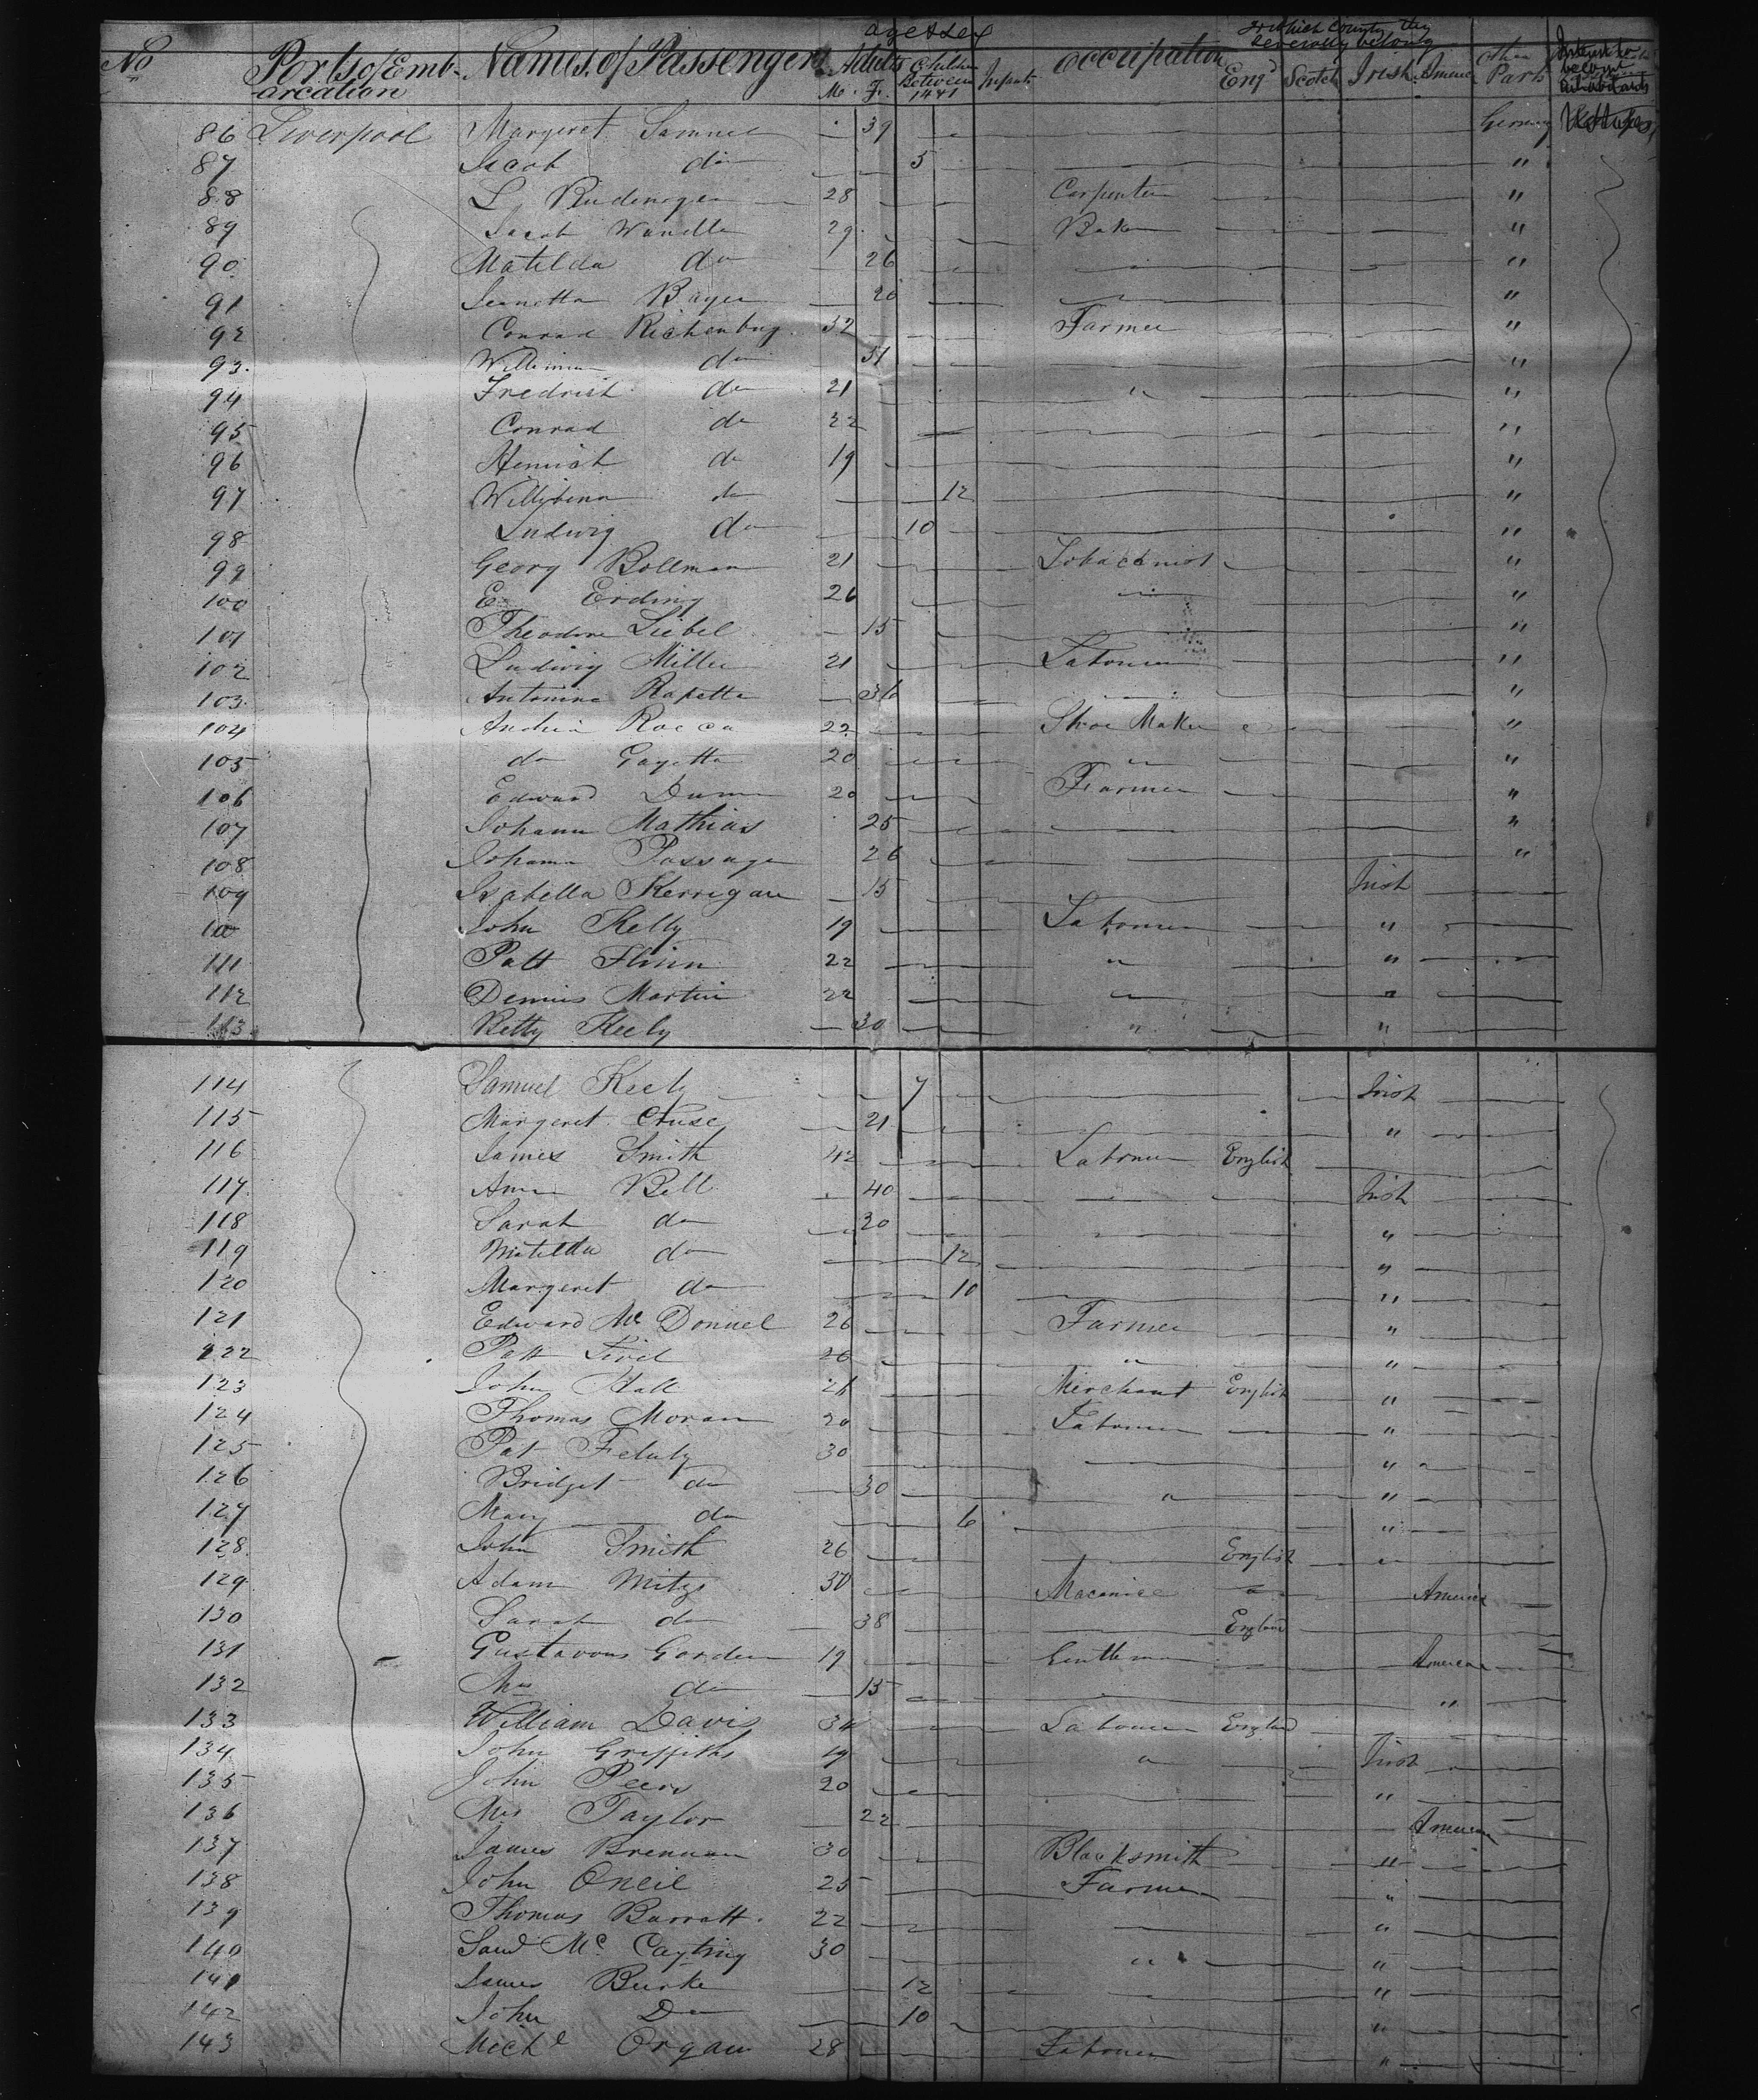 age & sex To which Country they severally belong
No Ports of Emb- Names of Passengers Adults Children Between Infants Occupation Eng Scotch Irish Other Parts become Inhabitants
arcation M. F. 14 & 1
86 Liverpool Margeret Samuel 39 Germany
87 Jacob do 5 "
88 L 28 Carpenter "
89 Jacob 29 Baker "
90 Matilda do 26 "
91 Bayer 20 "
92 Conrad Richenburg 32 Farmer "
93. do 31 "
94 Fredrich do 21 " "
95 Conrad do 22 "
96 Heinrich do 19 "
97 do 12 "
98 Ludwig do 10 "
99 Georg Bollman 21 Tobaconist "
100 E Erding 26 " "
101 Theodore Liebel 15 "
102 Ludwig Miller 21 Labourer "
103. Antonina Rapetta 36 "
104 Andria Rocca 22 Shoe Maker "
105 do Gayetta 20 " "
106 Edward 20 Farmer "
107 Johann Mathias 25 "
108 Johanna Passage 26 "
109 Isabella Kerrigan 15 Irish
110 John Kelly 19 Labourer "
111 Patt Flinn 22 " "
112 Dennis Martin 22 " "
113 Betty Keely 30 " "
114 Samuel Keely 7 Irish
115 Margeret 21 "
116 James Smith 42 Labourer English
117. Ann Bell 40 Irish
118 Sarah do 20 "
119 Matilda do 12 "
120 Margeret do 10 "
121 Edward Mc Donnel 26 Farmer "
122 Patt 20 " "
123 John Hall 21 Merchant English "
124 Thomas Moran 20 Labourer "
125 Pat 30 "
126 Bridget do 30 " "
127 Mary do 6 "
128 John Smith 26 English "
129 Adam Mitze 30 Macanice " America
130 Sarah do 38 England
131 Gustavous Gorden 19 Gentleman American
132 Mrs do 15 "
133 William Davis 34 Labourer England
134 John Griffiths 19 " Irish
135 John Peers 20 "
136 Mrs Taylor 22 American
137 James Brennan 30 Blacksmith "
138 John Oneil 25 Farmer "
139 Thomas Barratt. 22 "
140 Mc 30 " "
141 James Burke 12 "
142 John Do 10 "
143 Michl Organ 28 Labourer "